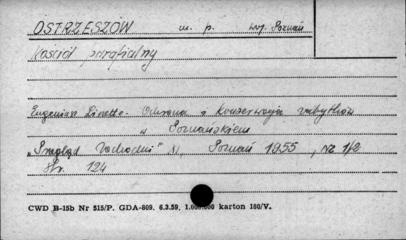 OSTRZESZÓW m. p. woj. Poznań
Kościół parafialny
Eugeniusz Linette - Ochrona i konserwacja zabytków
w Poznańskiem
"Przegląd Zachodni" XI, Poznań 1955, nr 1/2
str. 124
CWD B-15b Nr 515/P. GDA-809. 6.3.59, 1.000.000 karton 180/V.